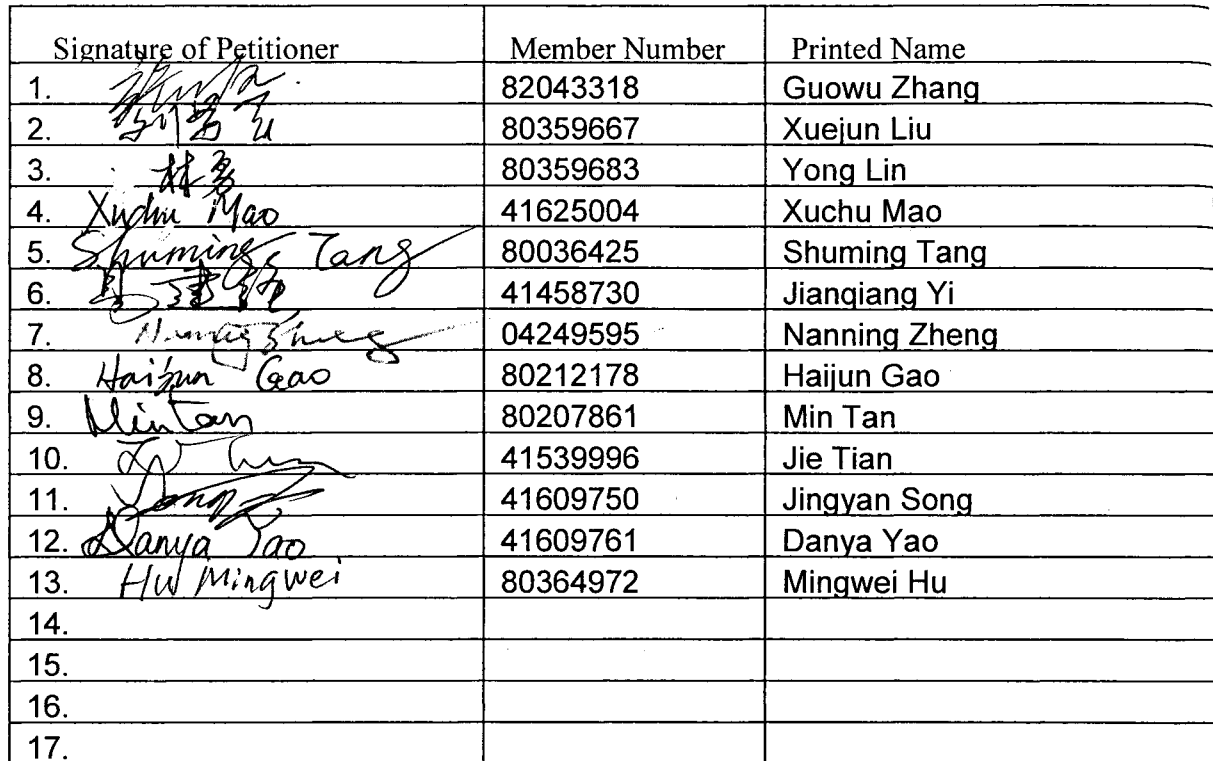 Signature of Petitioner Member Number Printed Name
1. 82043318 Guowu Zhang
2. 80359667 Xuejun Liu
3. 林勇 80359683 Yong Lin
4. Xuchu Mao 41625004 Xuchu Mao
5. Shuming Tang 80036425 Shuming Tang
6. 41458730 Jianqiang Yi
7. 04249595 Nanning Zheng
8. Haijun Gao 80212178 Haijun Gao
9. Min Tan 80207861 Min Tan
10. 41539996 Jie Tian
11. 41609750 Jingyan Song
12. Danya Yao 41609761 Danya Yao
13. Hu Mingwei 80364972 Mingwei Hu
14.
15.
16.
17.